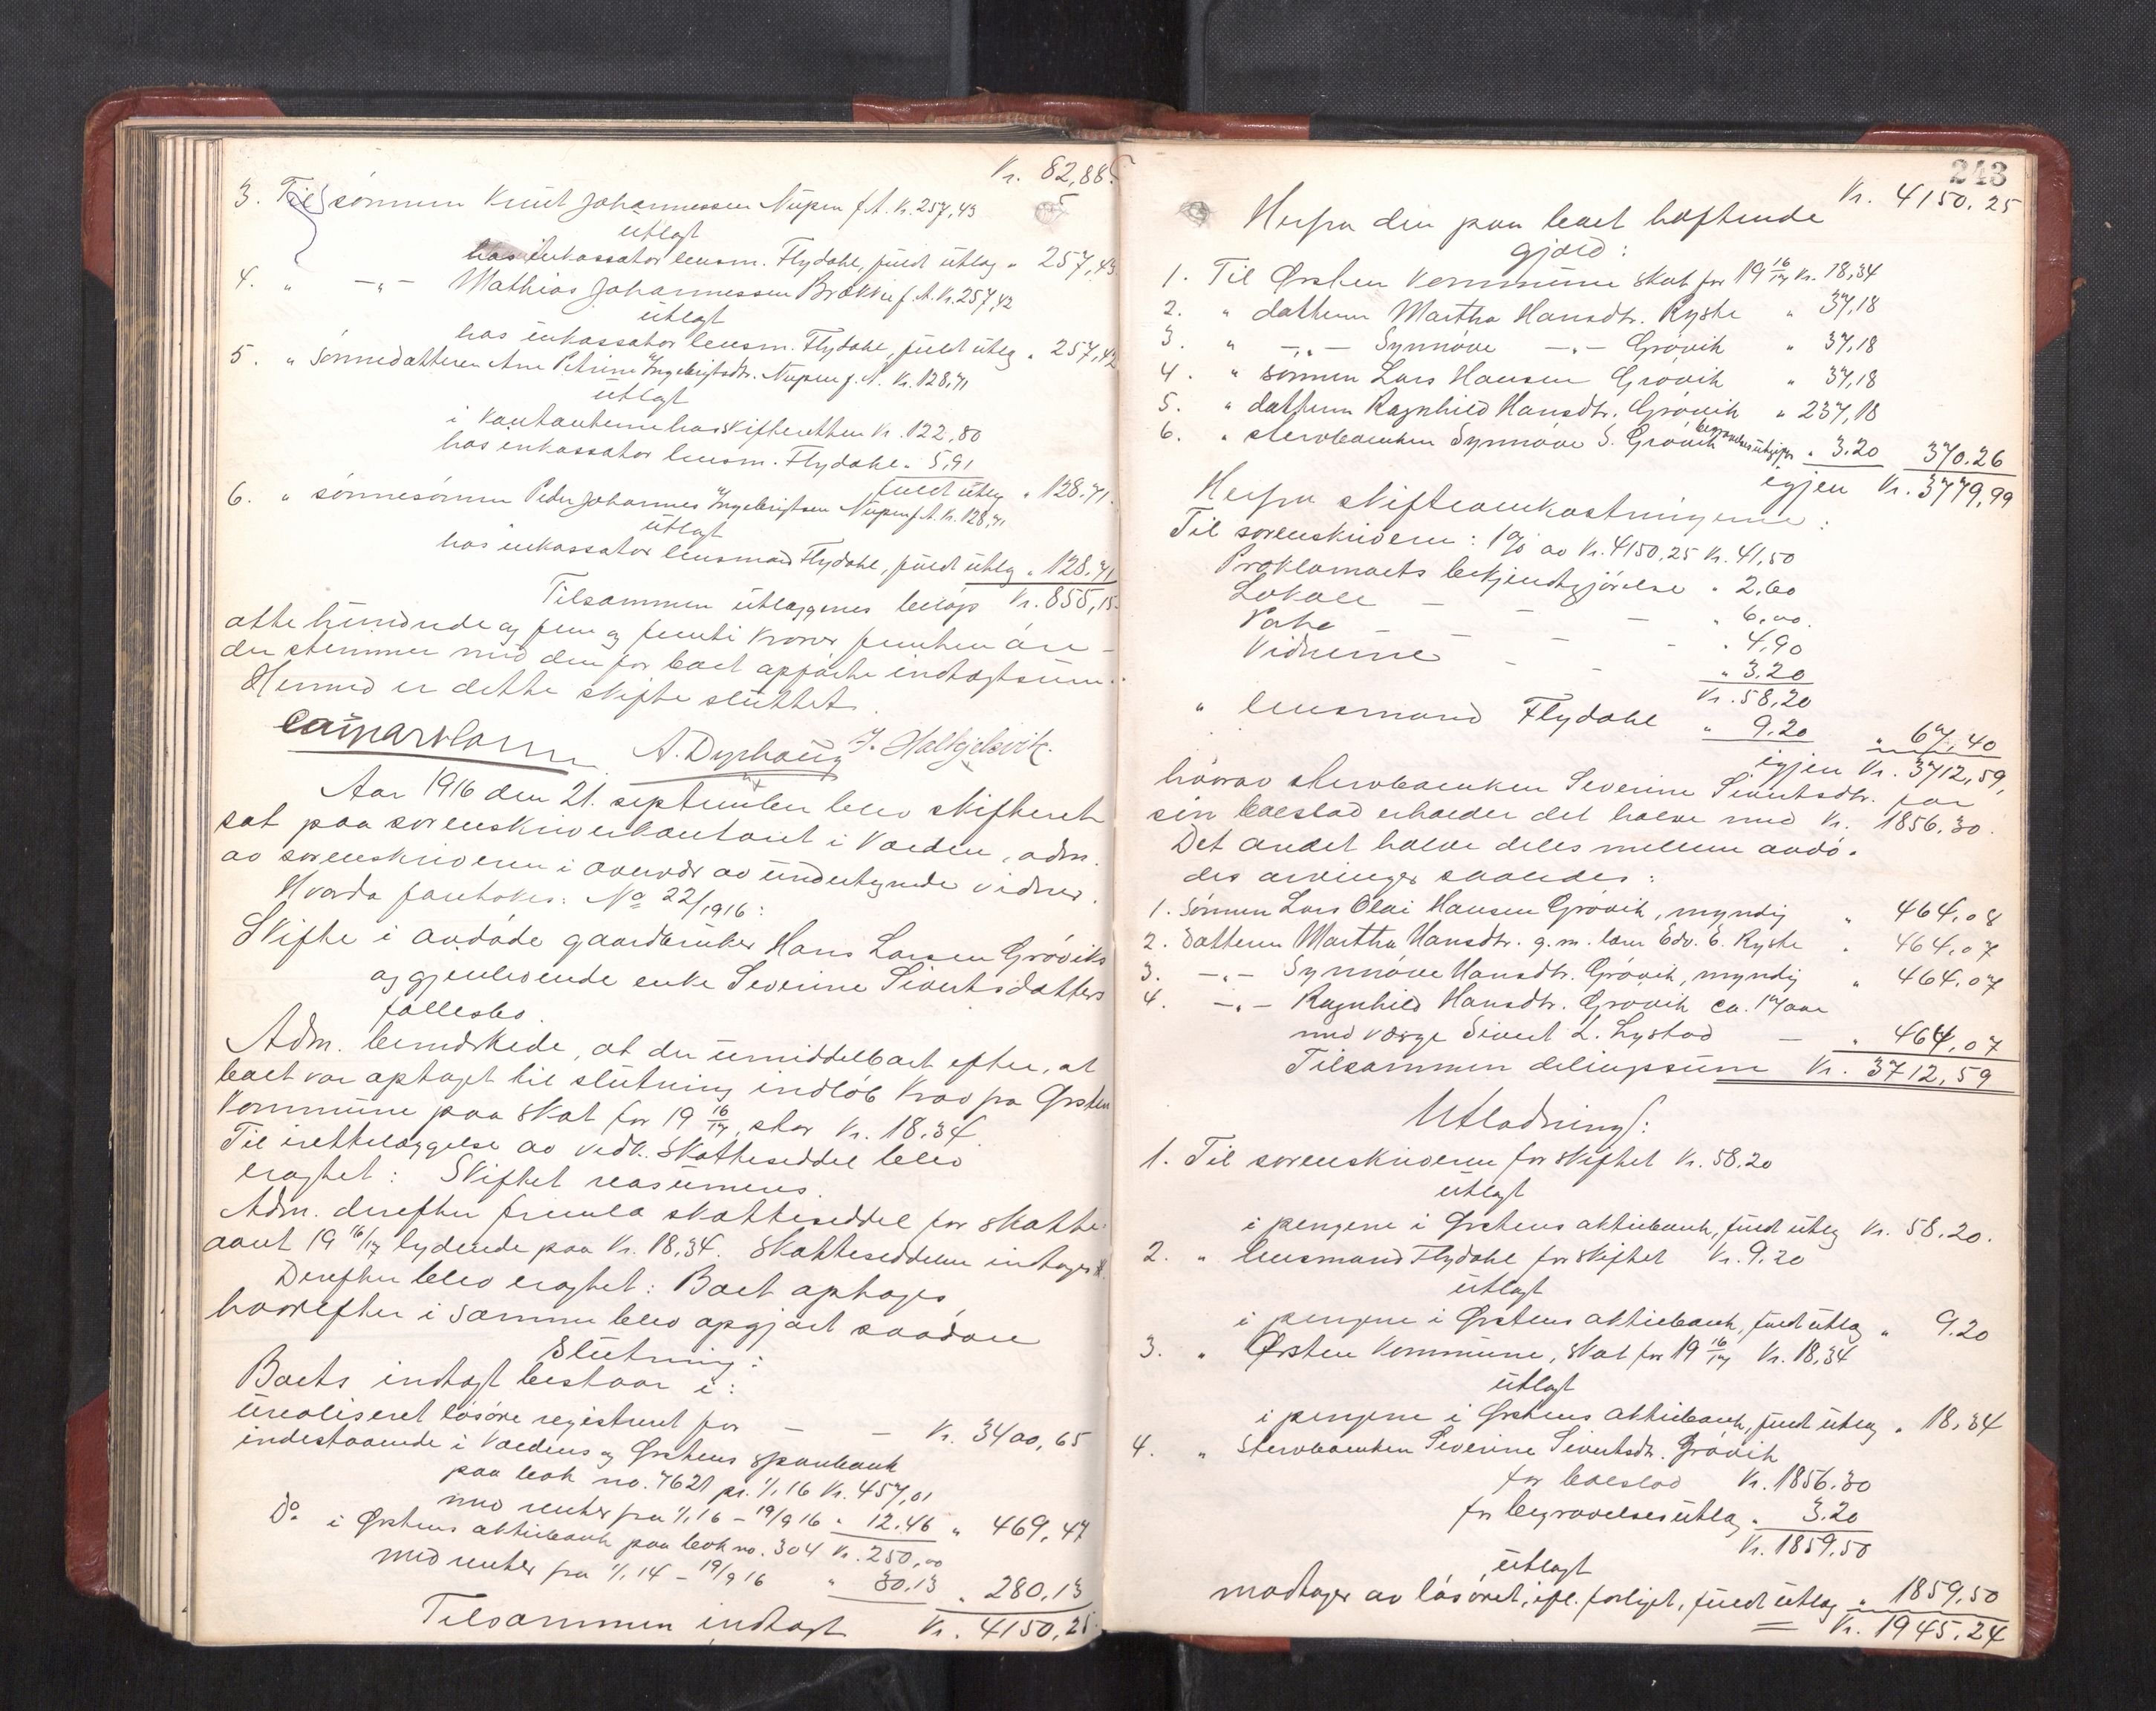 Kr. 82,88.
3. Til sønnen Knut Johannessen Nupen f. A. Kr. 257,43
utlagt
hos inkassator lensm. Flydahl, fuldt utlag " 257,43
4. " —"— Mathias Johannessen Brække f. A. Kr. 257,42
utlagt
hos inkassator lensm. Flydahl, fuldt utlæg " 257,42
5. " sønnedatteren Ane Petrine Ingebrigtsdtr. Nupen f. A. Kr. 128,71
utlagt
i kontanterne hos skifteretten Kr. 122,80
hos inkassator lensm. Flydahl " 5,91
fuldt utlæg " 128.71.
6. " sønnesønnen Peder Johannes Ingebrigtsen Nupen f. A. Kr. 128,71
utlagt
hos inkassator lensmand Flydahl, fuldt utlæg " 128.71
Tilsammen utlæggenes beløp Kr. 855,15.
otte hundrede og fem og femti kroner femten øre –
der stemmer med den for boet opførte indtægtsum.
Hermed er dette skifte sluttet.
Casparholm A. Dyrhaug J. Hallgjelsvik.
Aar 1916 den 21. september blev skifteret
sat paa sorenskriverkontoret i Volden, adm.
av sorenskriveren i overvær av undertegnede vidner.
Hvorda foretokes: No 22/1916:
Skifte i avdøde gaardbruker Hans Larsen Grøviks
og gjenlevende enke Severine Sivertsdatters
fællesbo.
Adm. bemerkede, at der umiddelbart efter, at
boet var optaget til slutning indløb krav fra Ørsten
kommune paa skat for 19 16/17, stor Kr. 18.34.
Til irettelæggelse av vedk. skatteseddel blev
eragtet: Skiftet reasumeres.
Adm. derefter fremla skatteseddel for skatte-
aaret 19 16/17 lydende paa Kr. 18,34. Skatteseddelen indtages
Derefter blev eragtet: Boet optages,
hvorefter i samme blev opgjort saadan
Slutning:
Boets indtægt bestaar i:
urealiseret løsøre registreret for — — Kr. 3400,65
indestaaende i Voldens og Ørstens sparebank
paa bok no. 7621 pr. 1/1 16 Kr. 457,01
med renter fra 1/1 16 – 19/9 16 " 12.46 " 469,47
Do i Ørstens aktiebank paa bok no. 304 Kr. 250,00
med renter fra 1/1 14 – 19/9 16 " 30,13 " 280,13
Tilsammen indtægt Kr. 4150,25.
243
Kr. 4150.25
Herfra den paa boet heftende
gjæld:
1. Til Ørsten kommune skat for 19 16/17 Kr. 18,34
2. " datteren Martha Hansdtr. Ryste " 37,18
3. " —"— Synnøve —"— Grøvik " 37,18
4. " sønnen Lars Hansen Grøvik " 37,18
5. " datteren Ragnhild Hansdtr. Grøvik " 237,18
6. " stervboenken Synnøve S. Grøvik begravelsesutgifter " 3.20 370.26
igjen Kr. 3779,99
Herfra skifteomkostningerne:
Til sorenskriveren: 1% av Kr. 4150,25 Kr. 41,50
Proklamaets bekjendtgjørelse " 2,60
Lokale — — — " 6,00.
Porto — — — " 4,90
Vidnerne — — " 3,20
Kr. 58,20
" lensmand Flydahl " 9,20 " 67,40
igjen Kr. 3712,59,
hvorav stervboenken Severine Sivertsdtr. for
sin boeslod erholder det halve med Kr. 1856,30.
Det andet halve deles mellem avdø-
des arvinger saaledes:
1. Sønnen Lars Olai Hansen Grøvik, myndig " 464,08
2. Datteren Martha Hansdtr. g. m. lærer Edv. E. Ryste " 464,07
3. —"— Synnøve Hansdtr. Grøvik, myndig " 464,07
4. —"— Ragnhild Hansdtr. Grøvik ca. 17 aar
med værge Sivert L. Lystad — " 464,07
Tilsammen delingssum Kr. 3712,59
Utlodning:
1. Til sorenskriveren for skiftet Kr. 58.20
utlagt
i pengene i Ørstens aktiebank, fuldt utlæg Kr. 58.20.
2. " lensmand Flydahl for skiftet Kr. 9.20
utlagt
i pengene i Ørstens aktiebank, fuldt utlæg " 9.20
3. " Ørsten kommune, skat for 19 16/17 Kr. 18,34
utlagt
i pengene i Ørstens aktiebank, fuldt utlæg " 18,34
4. " stervboenken Severine Sivertsdtr. Grøvik
for boeslod Kr. 1856.30
for begravelsesutlæg " 3.20
Kr. 1859.50
utlagt
modtager av løsøret, ifl. forliget, fuldt utlæg " 1859,50
Kr. 1945.24